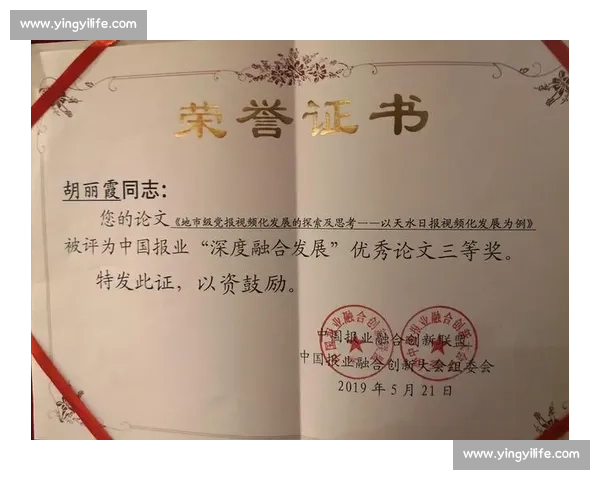 www.yingyilife.com
荣誉证书
胡丽霞同志：
您的论文《地市级党报视频化发展的探索及思考——以天水日报视频化发展为例》
被评为中国报业“深度融合发展”优秀论文三等奖。
特发此证，以资鼓励。
中国报业融合创新联盟
中国报业融合创新大会组委会
2019年5月21日
www.yingyilife.com